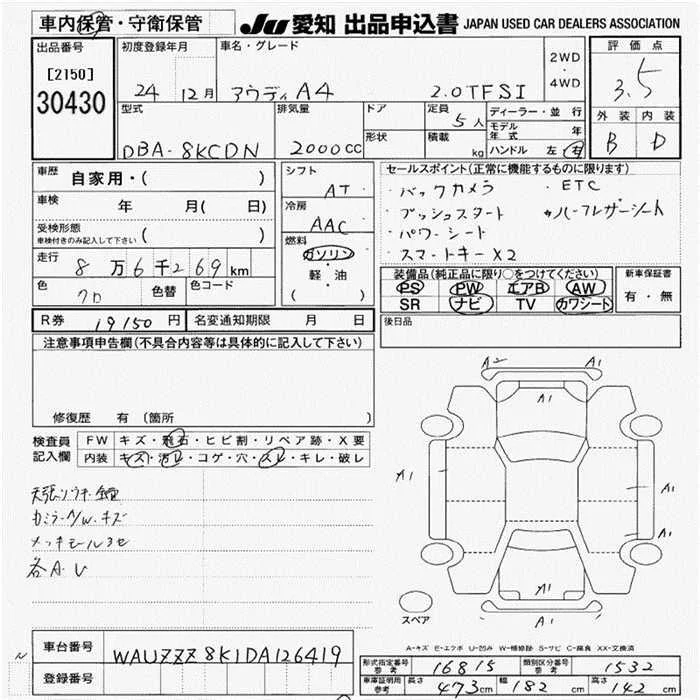 車内保管・守衛保管
JU 愛知 出品申込書 JAPAN USED CAR DEALERS ASSOCIATION
出品番号 初度登録年月 車名・グレード 2WD・4WD 評価点
[2150] 30430
24 12月 アウディA4 2.0TFSI 3.5
型式 排気量 ドア 定員 5人 ディーラー・並行 外装 内装
DBA-8KCDN 2000cc 形状 積載 kg モデル年式 年 B D
ハンドル 左 右
車歴 自家用・( ) シフト AT セールスポイント(正常に機能するものに限ります)
車検 年 月( 日) 冷房 AAC ・バックカメラ ・ETC
受検形態 車検付きのみ記入して下さい ( ) ・プッシュスタート ・ハーフレザーシート
燃料 ガソリン ・パワーシート
走行 8万6千269km 軽・油 ・スマートキーX2
( )
色 クロ 色替 色コード
装備品(純正品に限り○をつけてください) 新車保証書
PS PW エアB AW 有・無
SR ナビ TV カワシート
R券 19150円 名変通知期限 月 日 後日品
注意事項申告欄(不具合内容等は具体的に記入して下さい)
修復歴 有 (箇所
検査員記入欄 FW キズ・飛石・ヒビ割・リペア跡・X要
内装 キズ・汚レ・コゲ・穴・スレ・キレ・破レ
A2 A1
A1
A1 A1
A1
A1
カミラーA/W・キズ
メッキモール
各A・U
スペア
A-キズ E-エクボ U-凹み W-補修跡 S-サビ C-腐食 XX-交換済
車台番号 WAUZZZ8K1DA126419
登録番号
形式指定番号 参考 16815 類別区分番号 参考 1532
車庫証明用 参考 長さ 473cm 幅 182cm 高さ 142cm